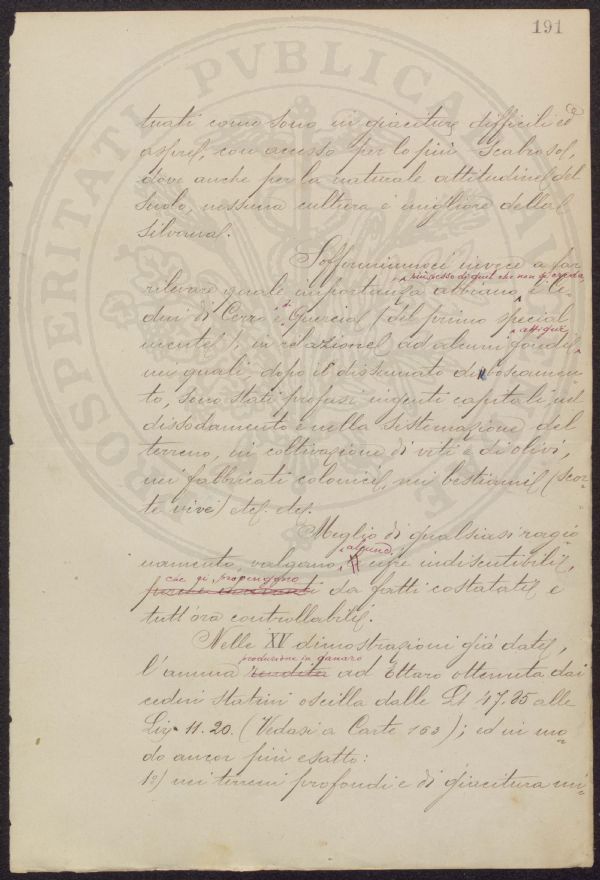 191
tuati come sono in giaciture difficili ed
aspre, con accesso per lo più scabroso,
dove anche per la naturale attitudine del
suolo, nessuna cultura è migliore della
silvana.
Soffermiamoci invece a far
rilevare quale importanza abbiano, i ce-
dui di Cerro e Quercia (del primo special
mente), in relazione ad alcuni poderi
nei quali, dopo il dissennato disboscamen
to, sono stati profusi ingenti capitali nel
dissodamento e nella sistemazione del
terreno, in coltivazione di viti e di olivi,
in fabbricati colonici, in bestiami (scor-
te vive) etc. etc.
Meglio di qualsiasi ragio
namento, valgano, alcune cifre indiscutibili,
che qi propongono
da fatti costatati e
tutt'ora controllabili.
Nelle XV dimostrazioni già date,
produzione in danaro
l'annua rendita ad Ettaro ottenuta dai
cedui statini oscilla dalle Lt 47.85 alle
Liv. 11.20. (Vedasi a Carte 163); ed in mo-
do ancor più esatto:
1°) nei terreni profondi e di giacitura mi-
PROSPERITATI PVBLICAE